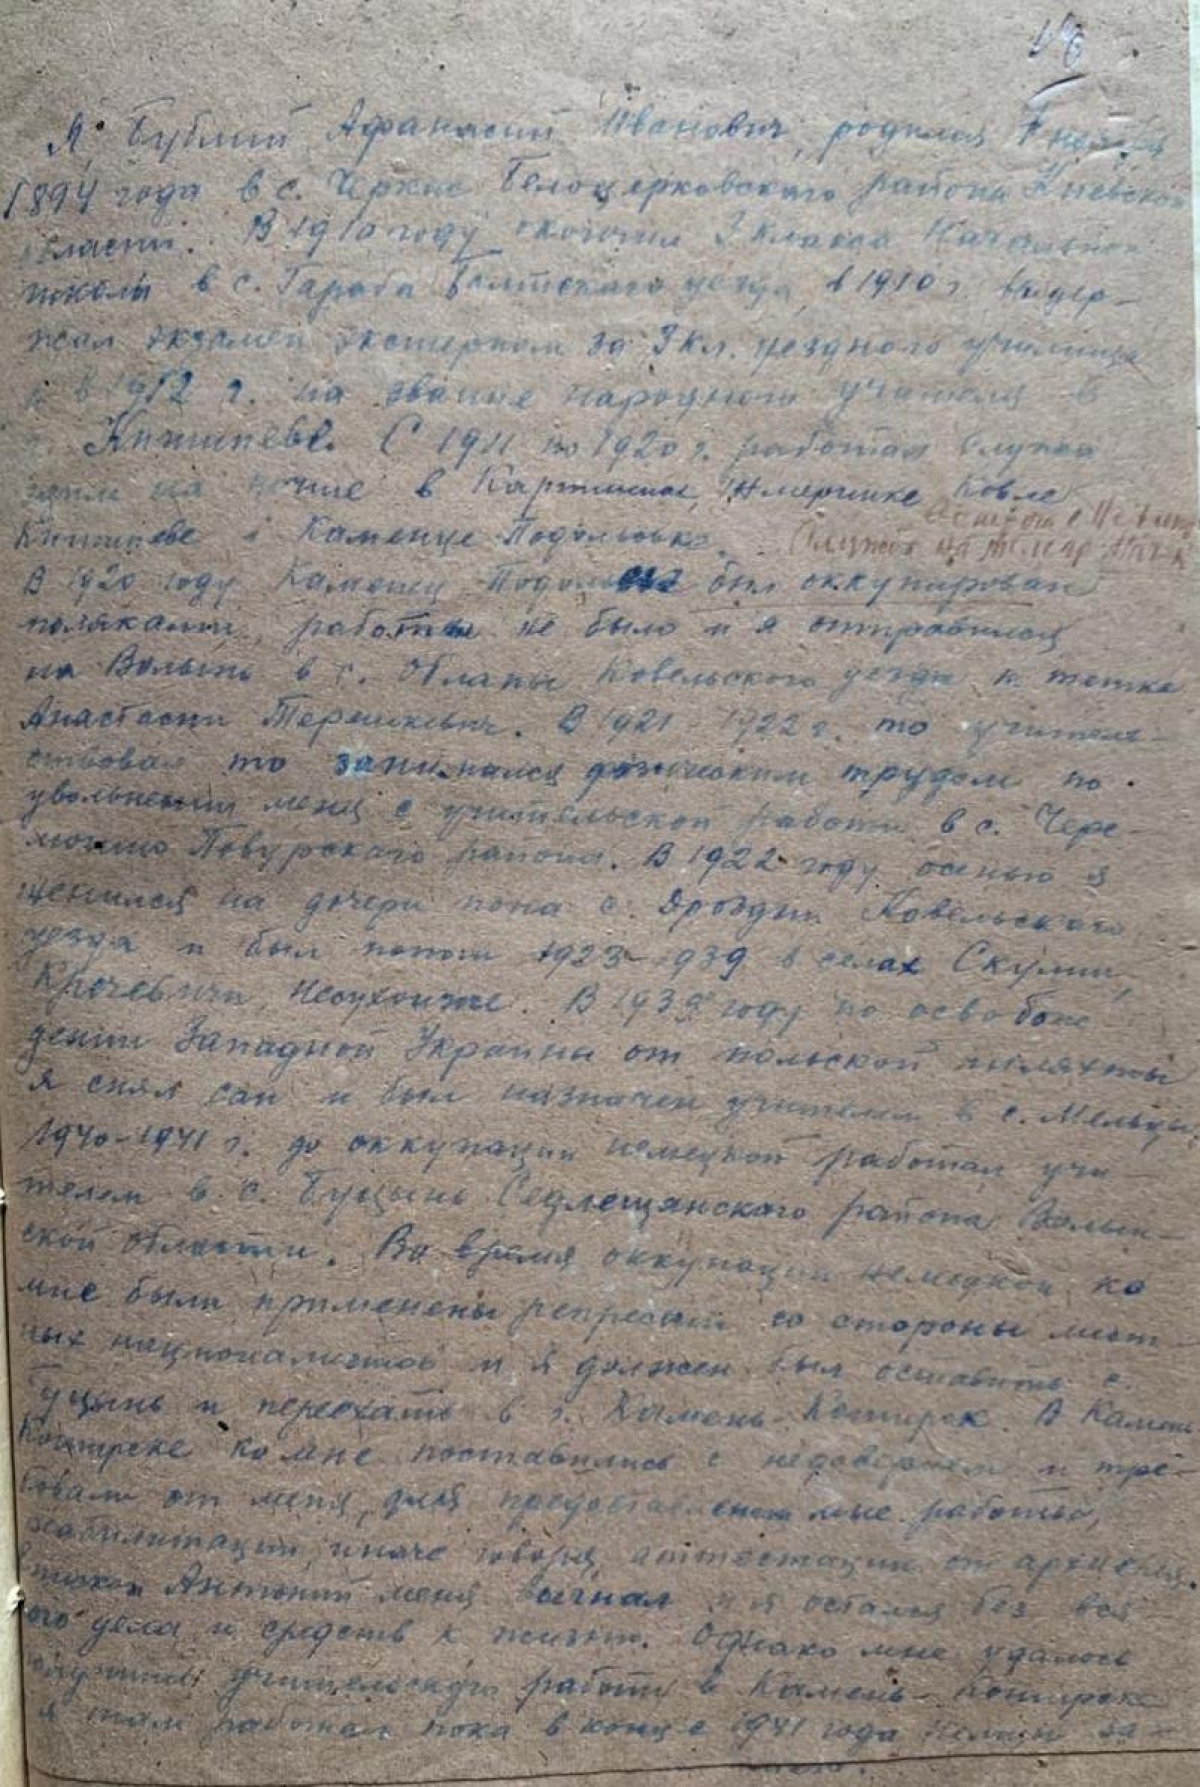 16
Я, Бублий Афанасий Иванович, родился
1894 года в с. Черкас Белоцерковского района Киевской
области. В 1910 году окончил 3 класса Начальной
школы в с. Балтского уезда, в 1910 г. выдер-
жал экзамен экстерном за 3 кл. уездного училища
и в 1912 г. на звание народного учителя в
г. Кишиневе. С 1911 по 1920 г. работал
в Жмеринке
Кишиневе и Каменце Подольске. Служба
В 1920 году Каменец Подольск был оккупирован
поляками, работы не было и я отправился
на Волынь в с. Обланы Ковельского уезда к тетке
Анастасии Терешкевич. В 1921-1922 г. то учитель-
ствовал то занимался физическим трудом по
увольнении меня с учительской работы в с. Чере-
Повурского района. В 1922 году осенью я
женился на дочери попа с. Дроздни Ковельского
уезда и был попом 1923-1939 в селах Скулин,
Кричевичи, Несухоиже. В 1939 году по освобож-
дении Западной Украины от польской шляхты
я снял сан и был назначен учителем в с. Мельцы,
1940-1941 г. до оккупации немецкой работал учи-
телем в с. Буцынь Седлещанского района Волын-
ской области. Во время оккупации немецкой ко
мне были применены репрессии со стороны мест-
ных националистов и я должен был оставить с.
Буцынь и переехать в г. Камень-Коширск. В Камень
Коширске ко мне поставились с недоверием и тре-
бовали от меня, для предоставления мне работы,
реабилитации, иначе говоря, аттестации от архиерея.
Антоний меня выгнал и я остался без вся-
кого дела и средств к жизни. Однако мне удалось
получить учительскую работу в Камень-Коширске
я там работал пока в конце 1941 года немцы за-